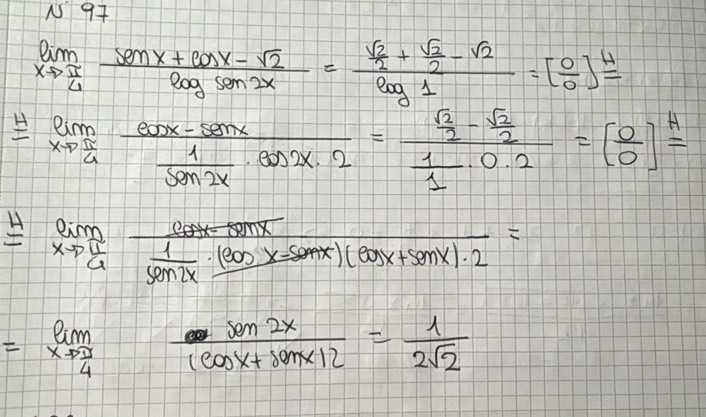 N 97
lim x→π/4 (sen x + cos x - √2)/(log sen 2x) = (√2/2 + √2/2 - √2)/(log 1) = [0/0] H=
H= lim x→π/4 (cos x - sen x)/(1/(sen 2x) · cos 2x · 2) = (√2/2 - √2/2)/(1/1 · 0 · 2) = [0/0] H=
H= lim x→π/4 (cos x - sen x)/(1/(sen 2x) · (cos x - sen x)(cos x + sen x) · 2) =
= lim x→π/4 (sen 2x)/((cos x + sen x)2) = 1/(2√2)